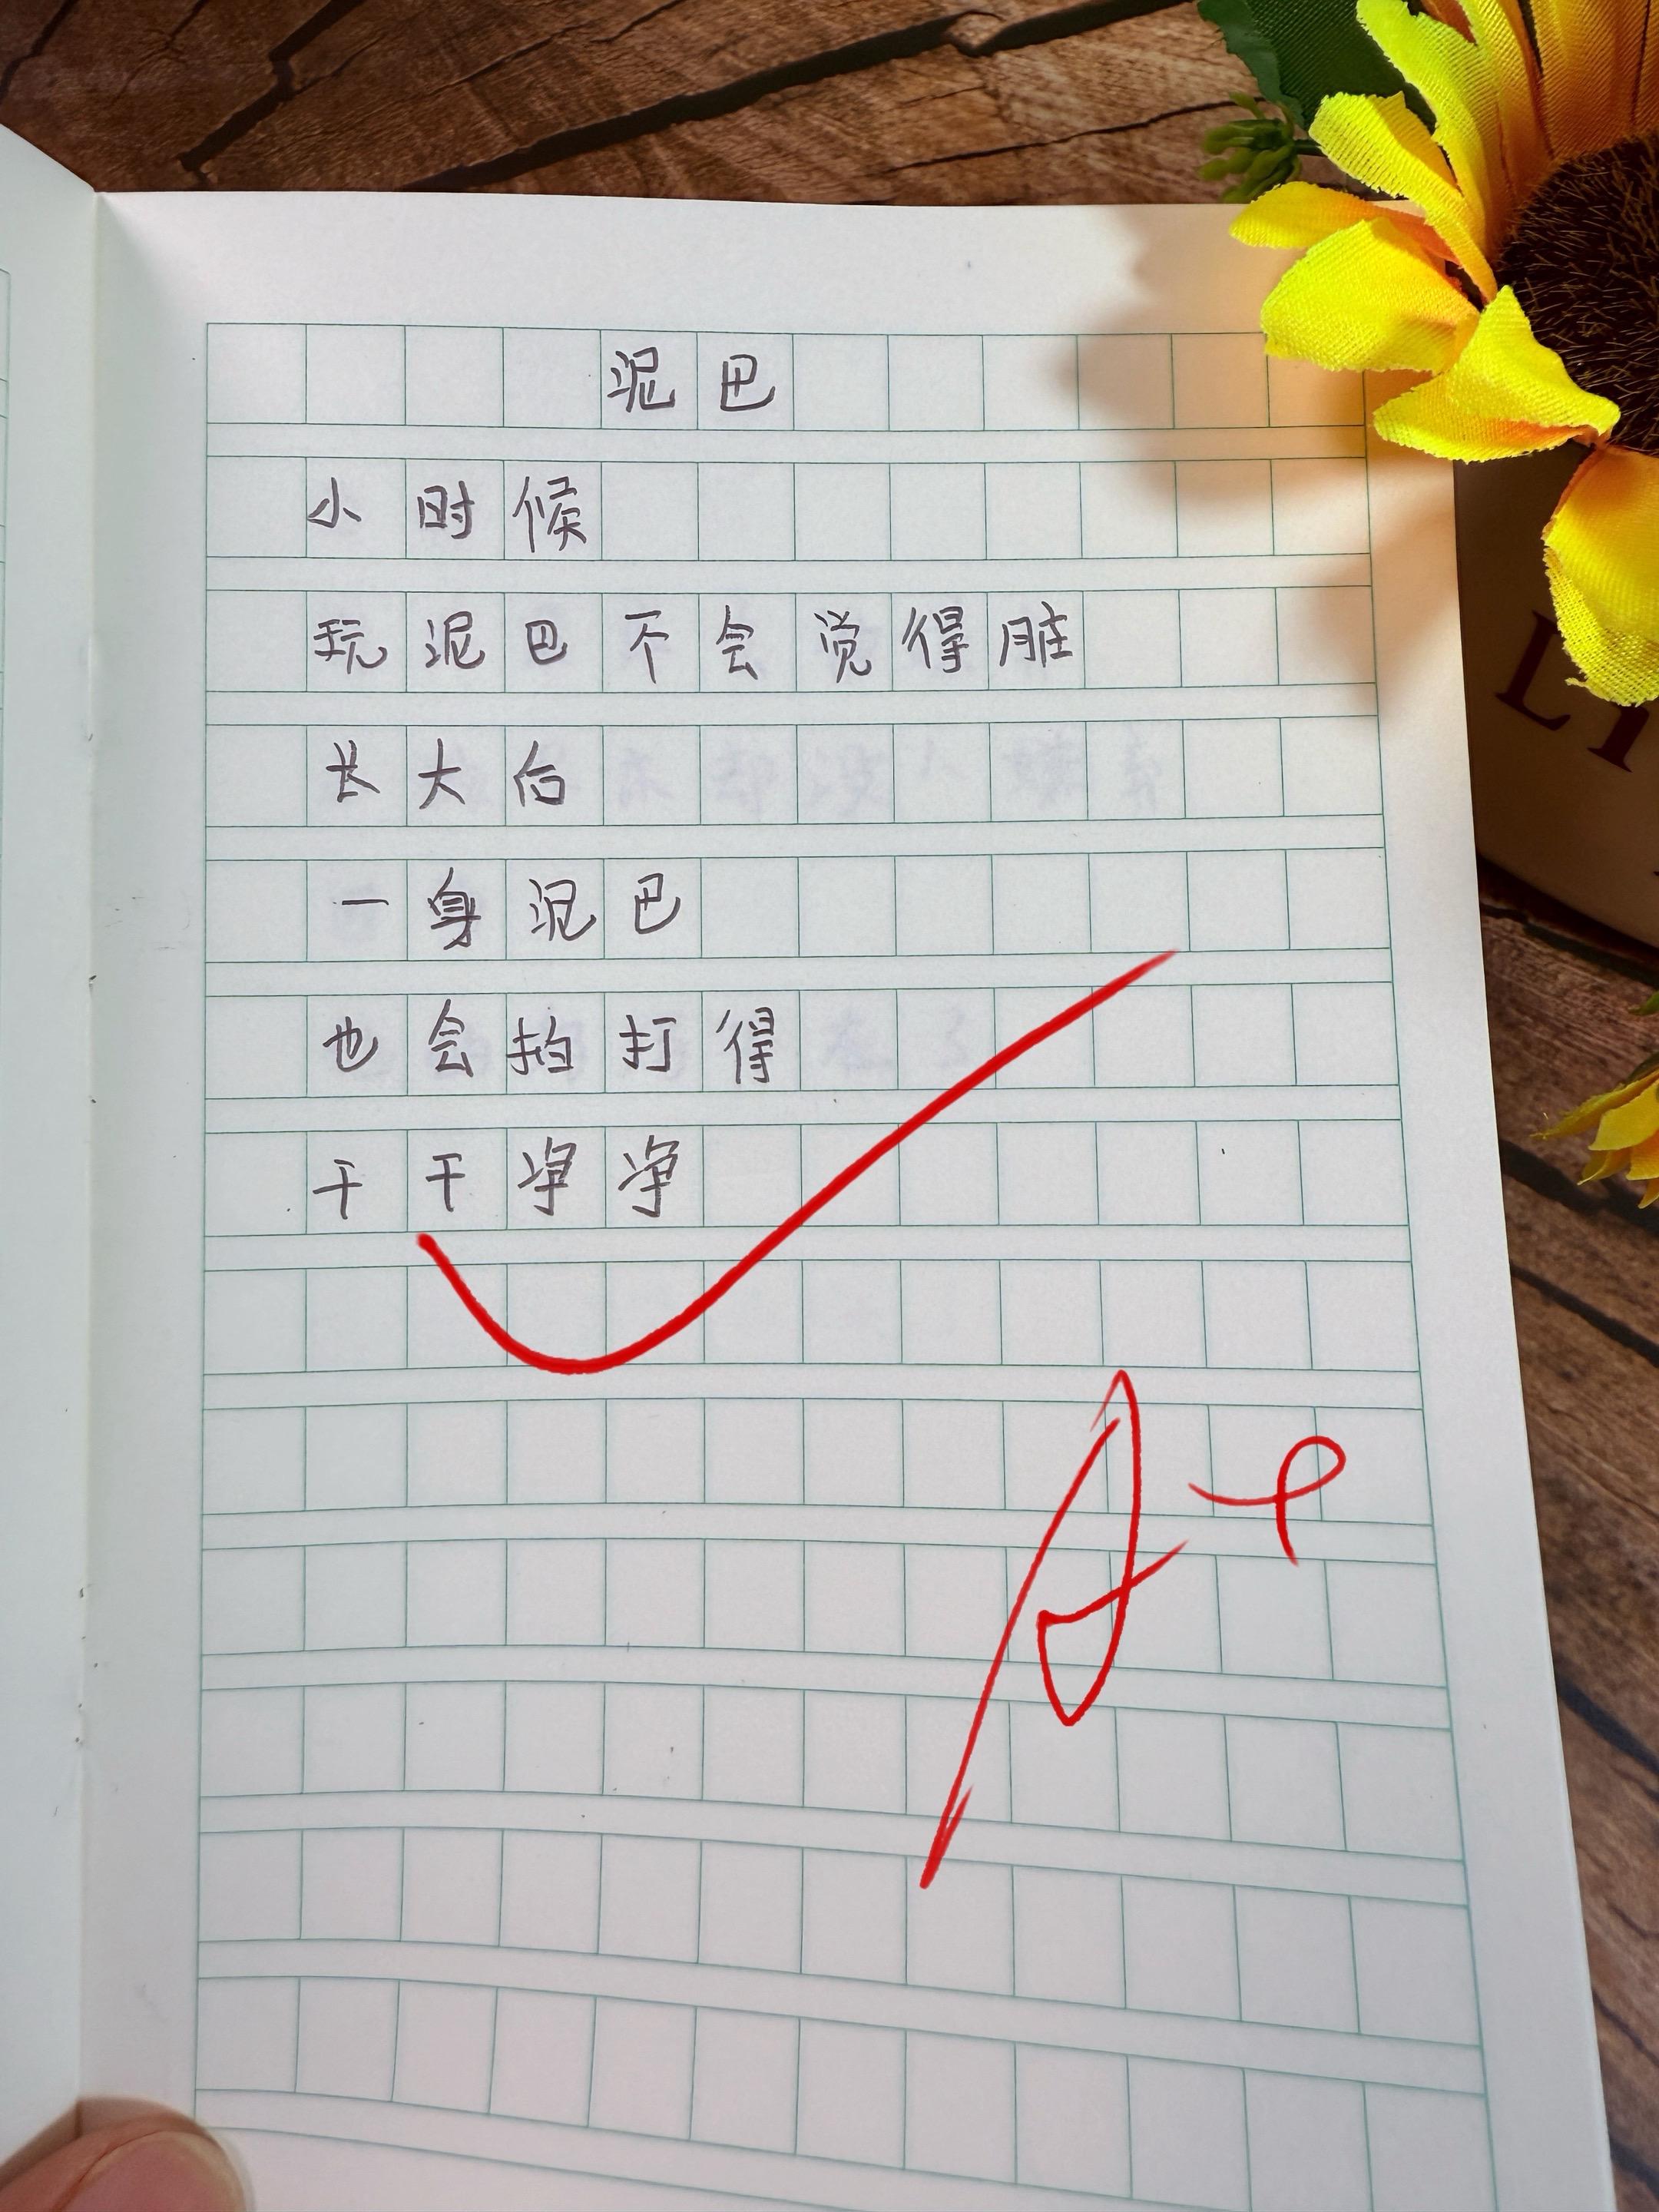 泥巴
小时候
玩泥巴不会觉得脏
长大后
一身泥巴
也会拍打得
干干净净
A+